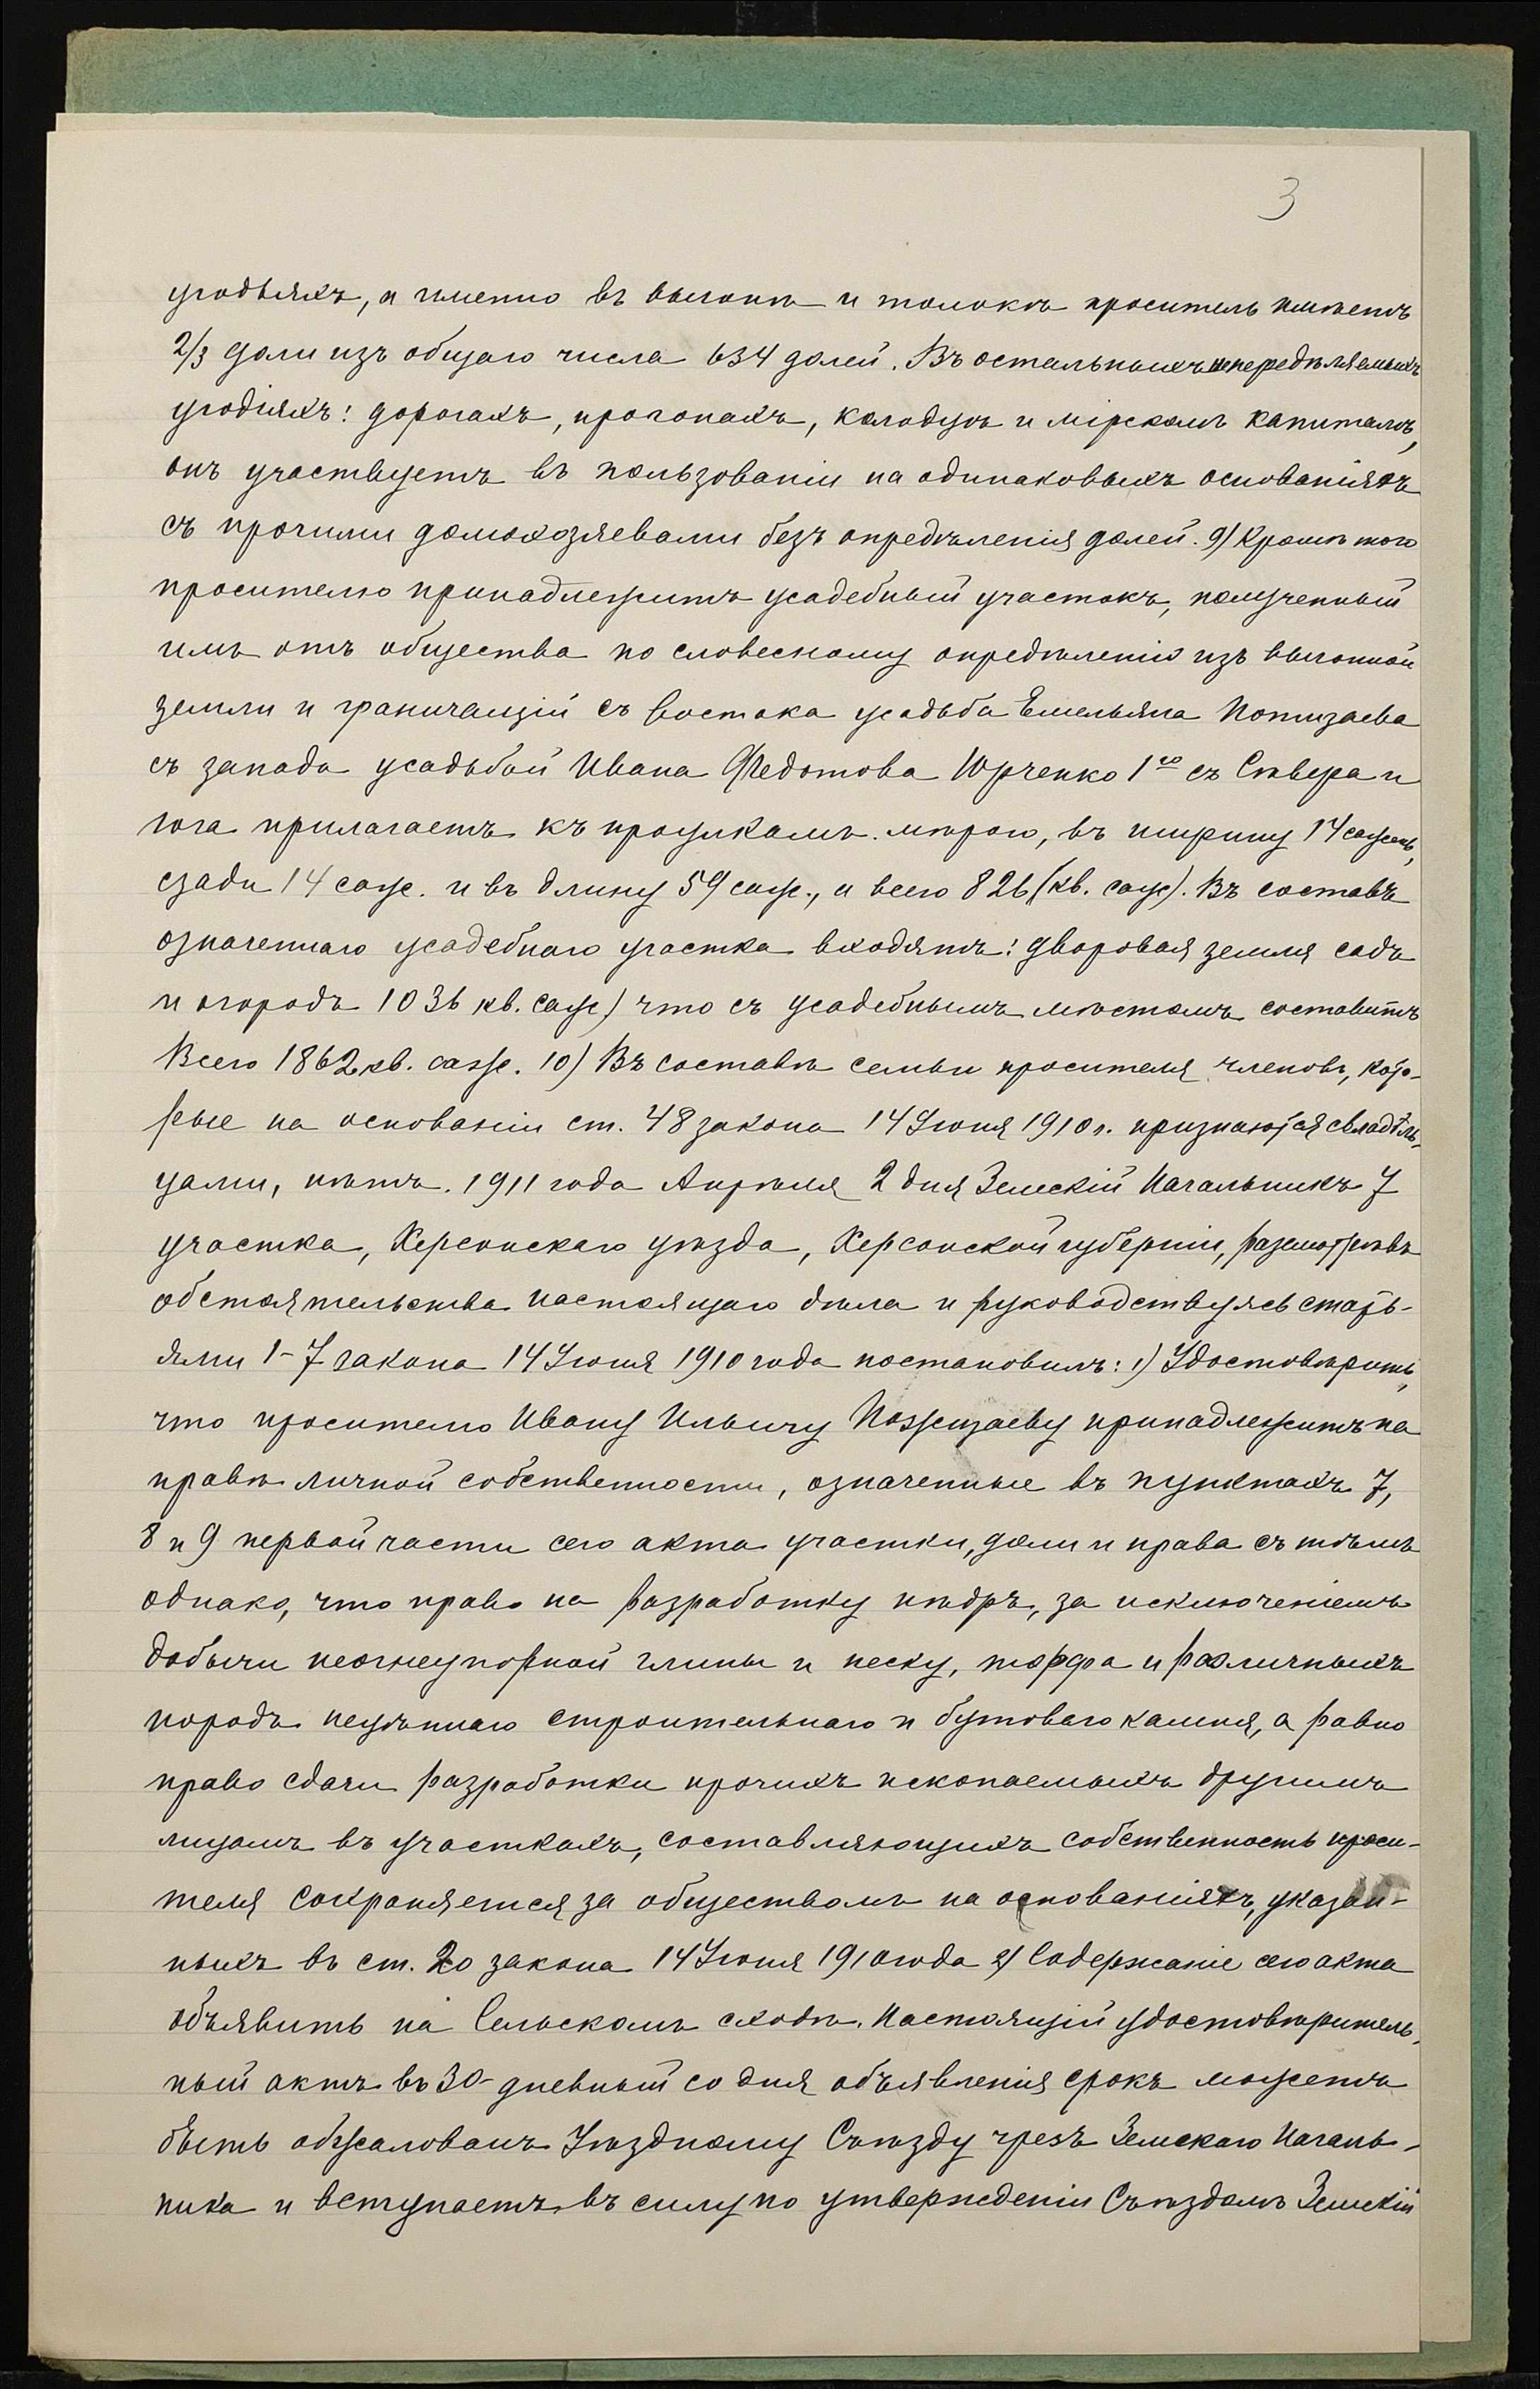 3
угодьяхъ, а именно въ выгонѣ и толокѣ проситель имѣетъ
2/3 доли изъ общаго числа 634 долей. Въ остальныхъ непередѣляемыхъ
угодіяхъ: дорогахъ, прогонахъ, колодцѣ и мірскомъ капиталѣ,
онъ участвуетъ въ пользованіи на одинаковыхъ основаніяхъ
съ прочими домохозяевами безъ опредѣленія долей. 9) Кромѣ того
просителю принадлежитъ усадебный участокъ, полученный
имъ отъ общества по словесному опредѣленію изъ выгонной
земли и граничащій съ востока усадьба Емельяна
съ запада усадьбой Ивана Федотова Юрченко 1го съ Сѣвера и
юга прилагаетъ къ проулкамъ. мѣрою, въ ширину 14 сажень,
сзади 14 саж. и въ длину 59 саж., а всего 826 (кв. саж). Въ составъ
означеннаго усадебнаго участка входятъ: дворовая земля садъ
и огородъ 1036 кв. саж) что съ усадебнымъ мѣстомъ составитъ
Всего 1862 кв. саж. 10) Въ составѣ семьи просителя членовъ, кото-
рые на основаніи ст. 48 закона 14 Іюня 1910 г. признаются свладѣль-
цами, нѣтъ. 1911 года Апрѣля 2 дня Земскій Начальникъ 7
участка, Херсонскаго уѣзда, Херсонской губерніи, разсмотрѣвъ
обстоятельства настоящаго дѣла и руководствуясь стать-
ями 1-7 закона 14 Іюня 1910 года постановилъ: 1) Удостовѣрить,
что просителю Ивану Ильичу принадлежитъ на
правѣ личной собственности, означенные въ пунктахъ 7,
8 и 9 первой части сего акта участки, доли и права съ тѣмъ
однако, что право на разработку нѣдръ, за исключеніемъ
добычи неогнеупорной глины и песку, торфа и различныхъ
породъ нецѣннаго строительнаго и бутоваго камня, а равно
право сдачи разработки прочихъ ископаемыхъ другимъ
лицамъ въ участкахъ, составляющихъ собственность проси-
теля сохраняется за обществомъ на основаніяхъ, указан-
ныхъ въ ст. 20 закона 14 Іюня 1910 года 2) Содержаніе сего акта
объявить на Сельскомъ сходѣ. Настоящій удостовѣритель-
ный актъ въ 30-дневный со дня объявленія срокъ можетъ
быть обжалованъ Уѣздному Съѣзду чрезъ Земскаго Началь-
ника и вступаетъ въ силу по утвержденіи Съѣздомъ Земскій